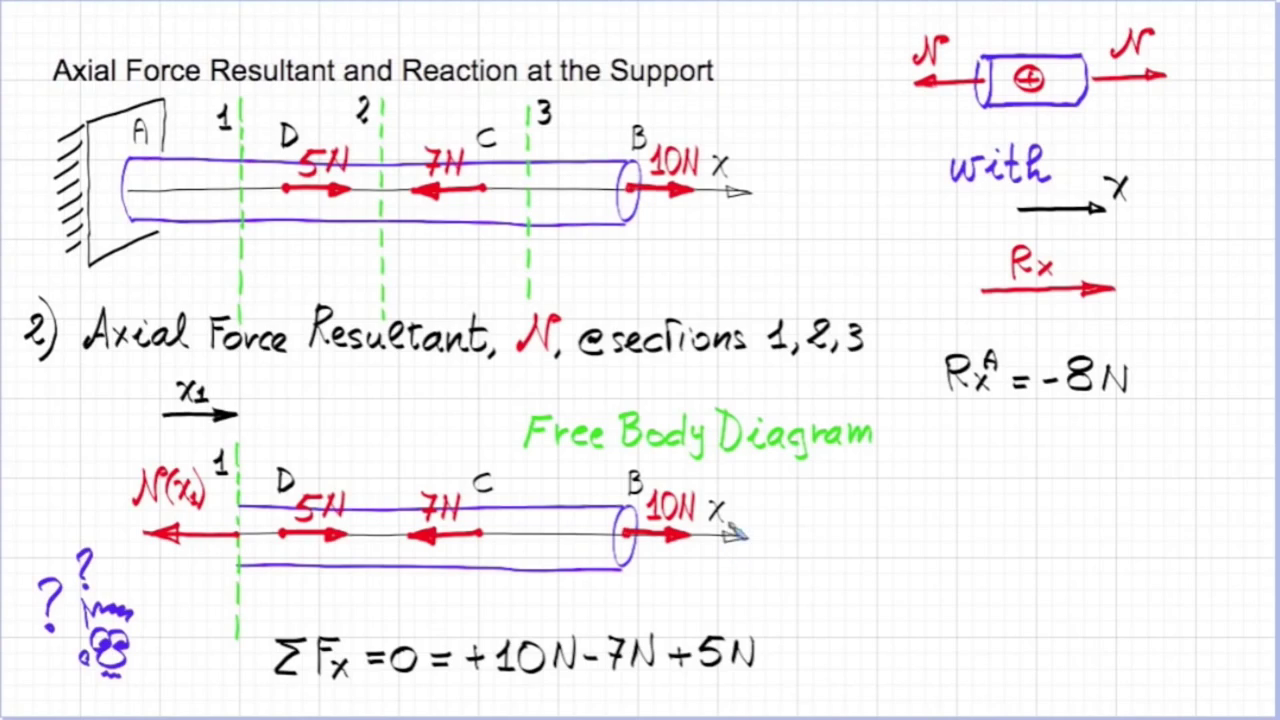 Axial Force Resultant and Reaction at the Support
N + N
A 1 D 5N 2 7N C 3 B 10N x
with
x
Rx
2) Axial Force Resultant, N, @sections 1,2,3
RxA = -8N
x1
Free Body Diagram
N(x1) 1 D 5N 7N C B 10N x
? ?
ΣFx =0= +10N-7N+5N